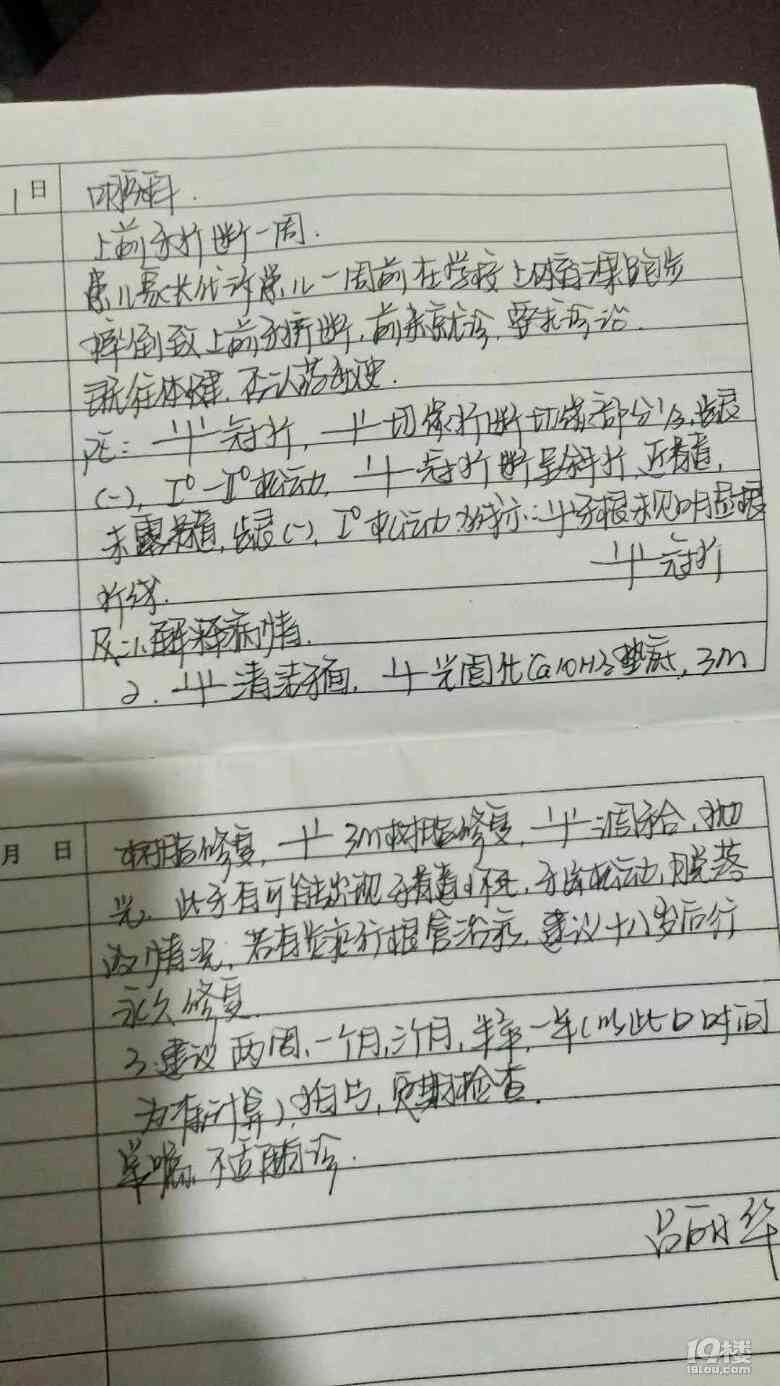 1日 口腔科.
上前牙折断一周.
患儿家长代诉患儿一周前在学校上体育课跑步
摔倒致上前牙折断,前来就诊,要求诊治.
既往体健.否认药敏史.
PE: 冠折, 切缘折断切缘部分1/3,
(-), I°-II°松动, 冠折断呈斜折,近髓,
未露髓, (-), I°松动 牙根未见明显根
冠折
折线.
1.解释病情.
2. 清洁牙面, 光固化Ca(OH)2垫底,3M
月 日 树脂修复, 3M树脂修复, 调合,抛
光. 此牙有可能出现牙髓坏死,牙齿松动,脱落
的情况,若有 行根管治疗,建议十八岁后行
永久修复
3.建议两周,一个月,三个月,半年,一年(以此日时间
为标计算) 拍片,定期检查.
嘱 不适随诊.
吕丽华
19楼
19lou.com